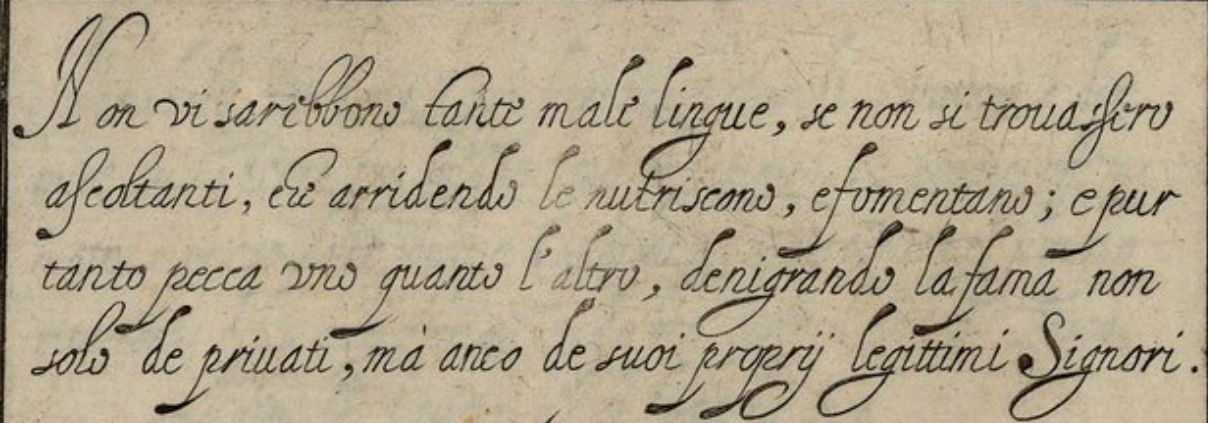 Non vi saribbono tante male lingue, se non si trouassero
ascoltanti, che arridendo le nutriscono, e fomentano; e pur
tanto pecca vno quanto l'altro, denigrando la fama non
solo de priuati, mà anco de suoi proprij legittimi Signori.